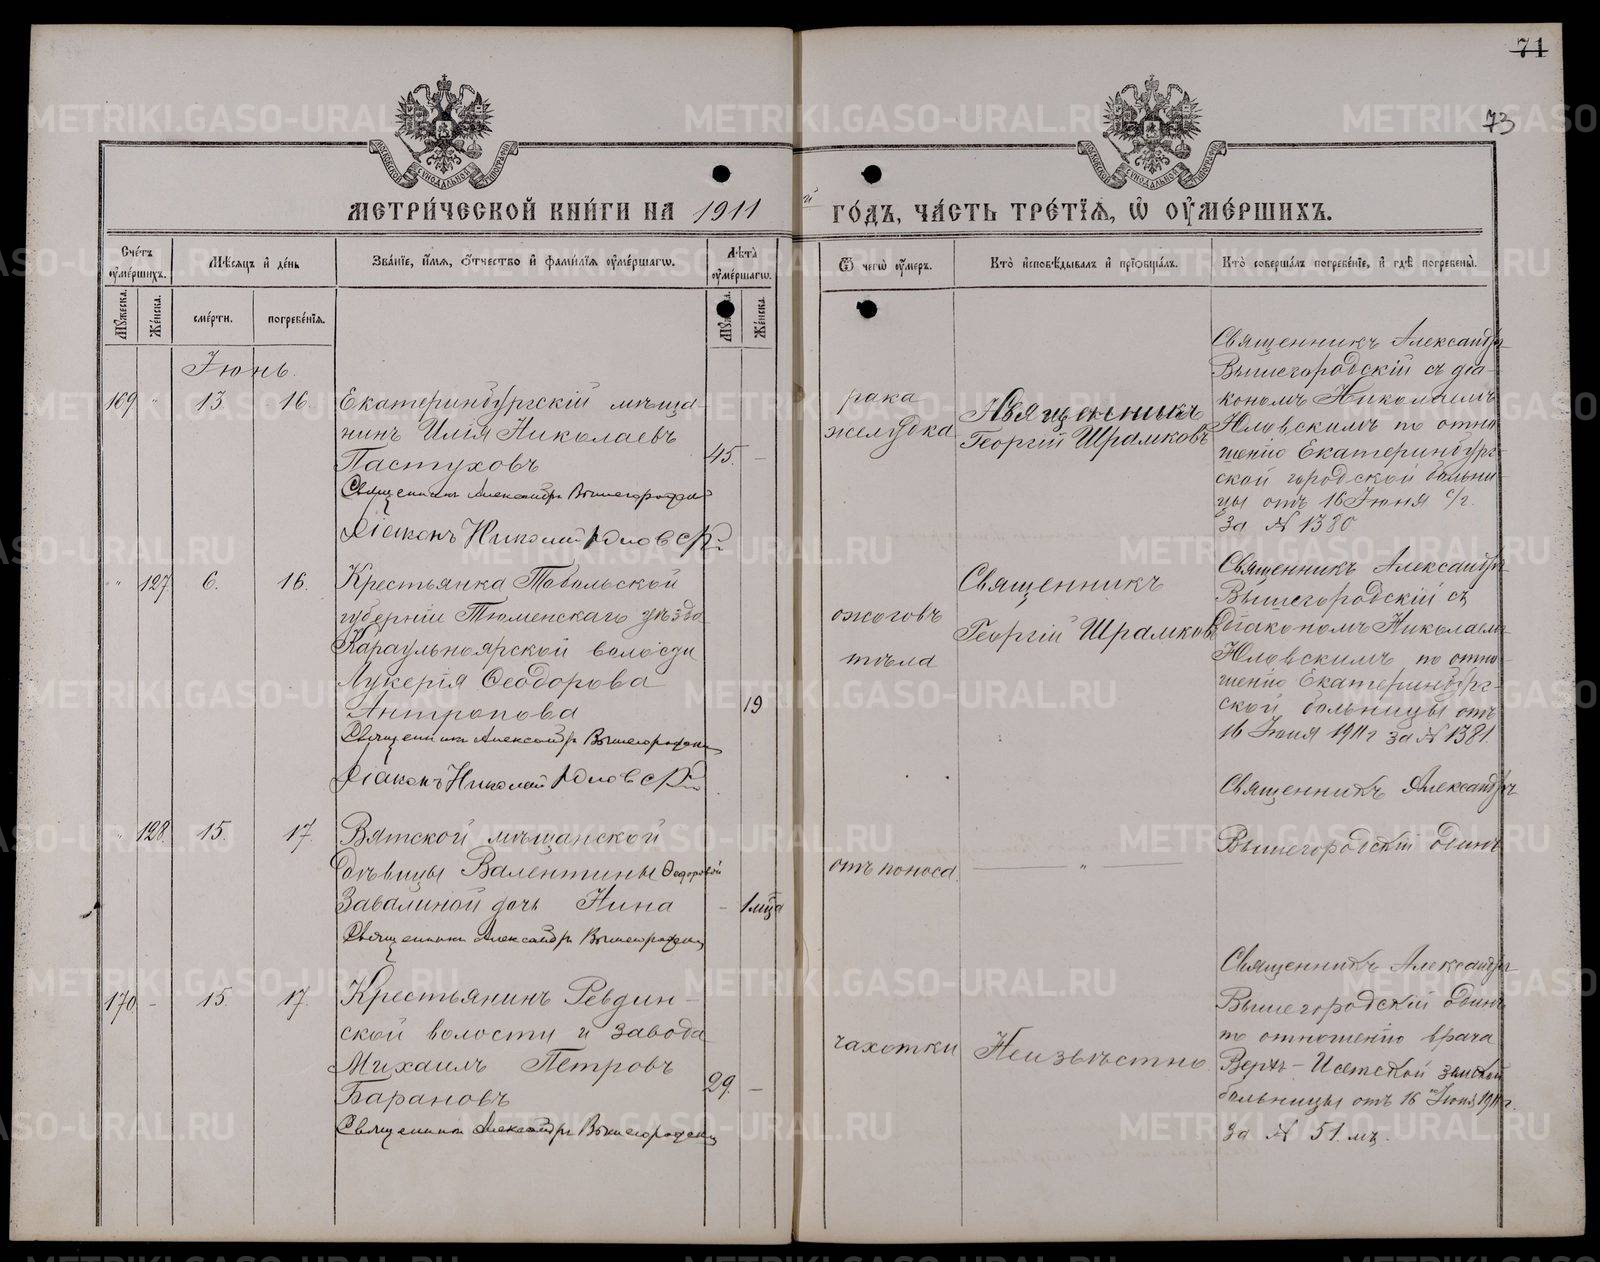 71
73
МЕТРИ́ЧЕСКОЙ КНИ́ГИ НА 1911й ГО́ДЪ, ЧА́СТЬ ТРЕ́ТІѦ, Ѡ ОУ҆МЕ́РШИХЪ.
Счётъ оумершихъ.
Мужеска.
Женска.
Мѣсяцъ и день
смерти.
погребенія.
Званіе, имя, отчество и фамилія оумершагѡ.
Лѣта оумершагѡ.
Мужеска.
Женска.
Ѿ чегѡ оумеръ.
Кто исповѣдывалъ и пріобщалъ.
Кто совершалъ погребеніе, и гдѣ погребены.
Іюнь.
169 " 13. 16.
Екатеринбургскій мѣща-
нинъ Илія Николаевъ
Пастуховъ
45. –
Священникъ Александръ Вышегородскій
Діаконъ Николай Юловскій
рака
желудка
Священникъ
Георгій Шрамковъ
Священникъ Александръ
Вышегородскій съ діа-
кономъ Николаемъ
Юловскимъ по отно
шенію Екатеринбург-
ской городской больни-
цы отъ 16 Іюня с/г.
за № 1380
" 127 6. 16.
Крестьянка Тобольской
губерніи Тюменскаго уѣзда
Караульноярской волости
Лукерія Ѳеодорова
Антропова
19
Священникъ Александръ Вышегородскій
Діаконъ Николай Юловскій
ожоговъ
тѣла
Священникъ
Георгій Шрамковъ
Священникъ Александръ
Вышегородскій съ
Діакономъ Николаемъ
Юловскимъ по отно-
шенію Екатеринбург-
ской больницы отъ
16 Іюня 1911 г за № 1381.
" 128. 15. 17.
Вятской мѣщанской
дѣвицы Валентины Ѳедоровой
Завалиной дочь Нина
– 1 мца
Священникъ Александръ Вышегородскій
отъ поноса.
"
Священникъ Александръ
Вышегородскій одинъ
170 – 15. 17.
Крестьянинъ Ревдин-
ской волости и завода
Михаилъ Петровъ
Барановъ
29. –
Священникъ Александръ Вышегородскій
чахотки
Неизвѣстно
Священникъ Александръ
Вышегородскій одинъ
по отношенію врача
Верхъ-Исетской земской
больницы отъ 16 Іюня 1911 г.
за № 51. мц.
METRIKI.GASO-URAL.RU